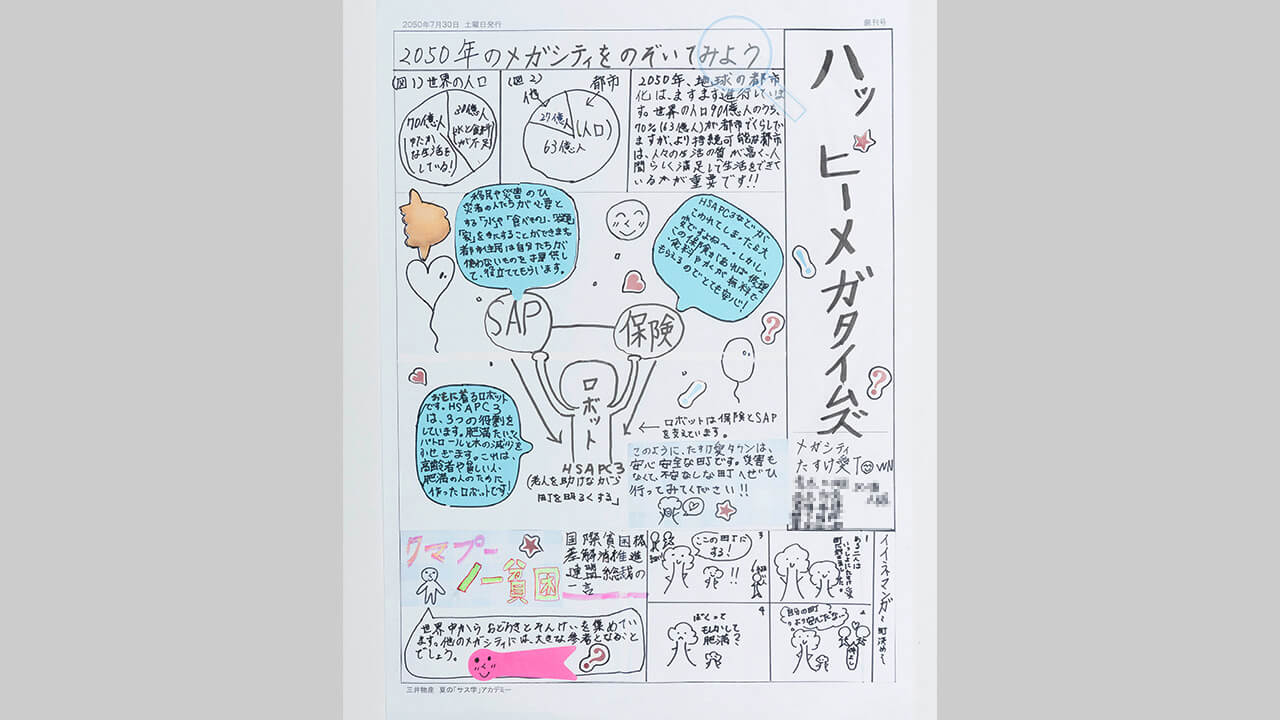 2050年7月30日 土曜日発行
創刊号
2050年のメガシティをのぞいてみよう
ハッピーメガタイムズ
(図1)世界の人口
70億人
ゆたか
な生活を
している!
(図2)
都市
27億人
(人口)
63億人
2050年、地球の都市
化は、ますます進行していま
す。世界の人口90億人のうち、
70%(63億人)が都市でくらしてい
ますが、より持続可能な都市
は、人々の生活の質が高く、人
間らしく満足して生活をできて
いるかが重要です!!
移民や災害のひ
災者の人たちが必要と
する「水」や「食べもの」、
「家」を
することができます。
都市住民は自分たちが
使わないものを提供し
て、役立ててもらいます。
HSAPC3などが
こわれてしまったら大
変ですよね〜。しかし、
この保険があれば修理
もらえるのでとても安心!
SAP
保険
ロボット
おもに着るロボット
です。HSAPC3
は、3つの役割を
しています。肥満たいじ、
パトロールと水の減少を
かせぎます。これは、
高齢者や貧しい人、
肥満の人のために
作ったロボットです!
←ロボットは保険とSAP
を支えています。
HSAPC3
(老人を助けながら
町を明るくする」
このように、たすけ愛タウンは、
安心安全な町です。災害も
なくて不安なしな町へぜひ
行ってみてください!!
メガシティ
たすけ愛TOWN
クマプー
ノー貧困
国際貧困格
差解消推進
連盟総裁の
一言
世界中からおどろきとそんけいを集めてい
ます。他のメガシティには、大きな参考となること
でしょう。
イイネマンガ〜町決め〜
1
3
ここの町に
する!
!!
自分の町
4
ぼくって
もしかして
肥満?
三井物産 夏の「サス学」アカデミー